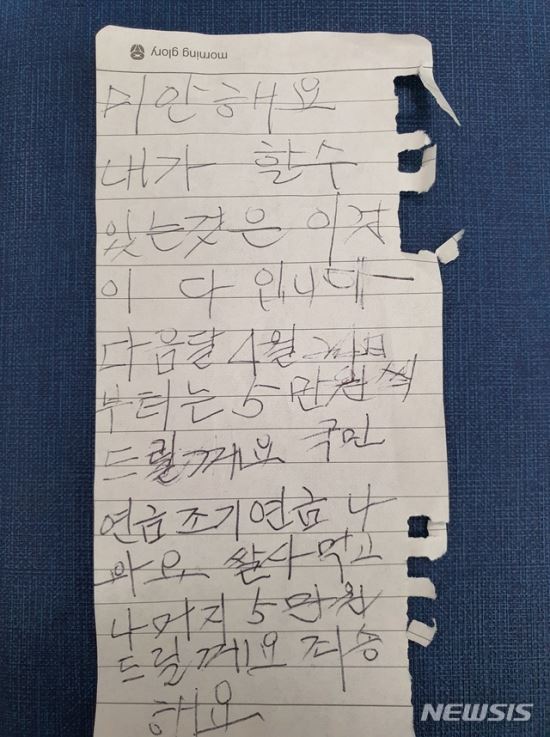 morning glory
미안해요
내가 할수
있는것은 이것
이 다 입니다
다음달 1월
부터는 5만원씩
드릴께요 국민
연금조기연금 나
와요 쌀사먹고
나머지 5만원
드릴께요 죄송
해요
NEWSIS